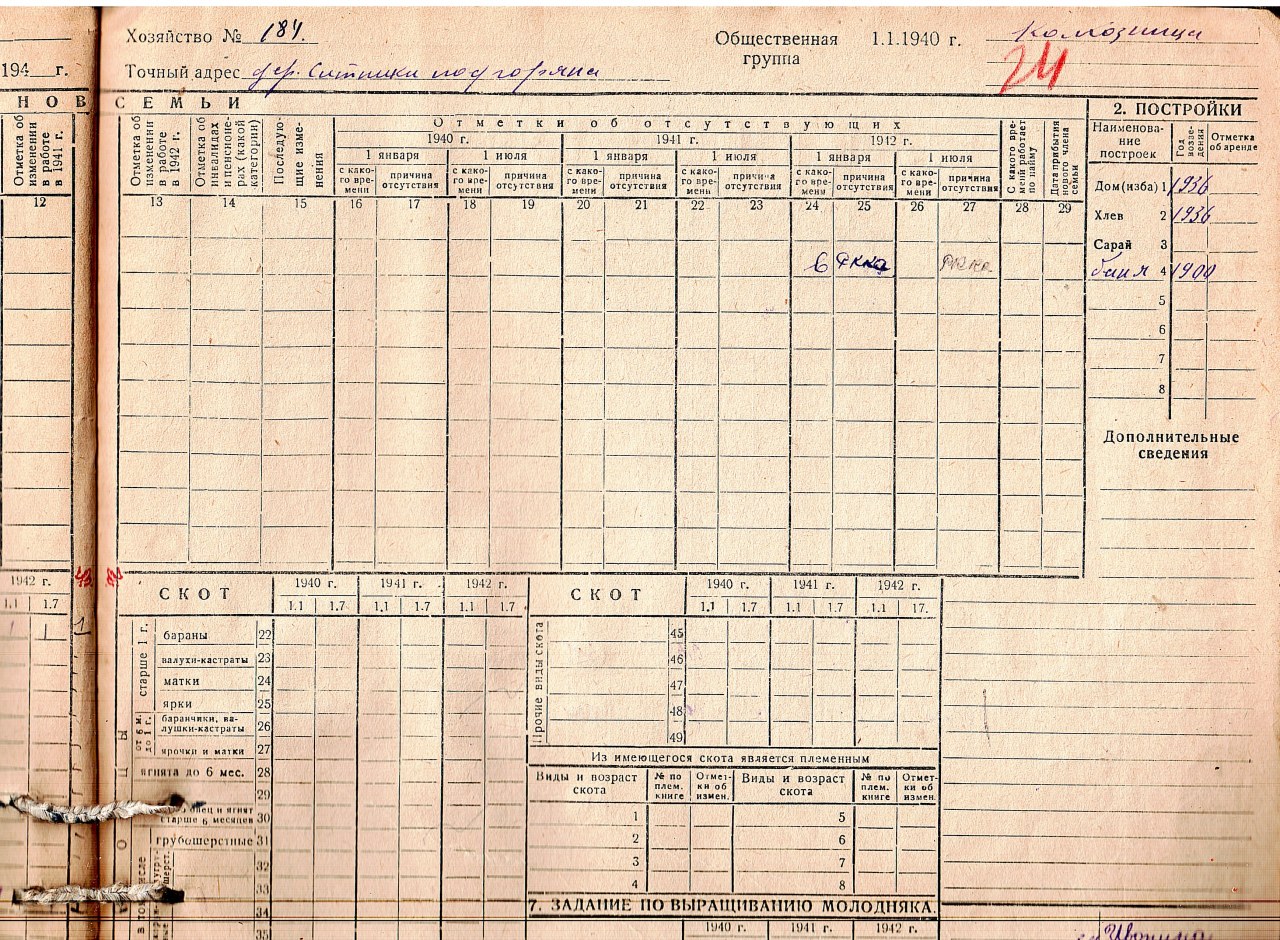 Хозяйство № 184.
Общественная группа 1.1.1940 г. Колхозница
24
194 г.
Точный адрес дер. Ситники
НОВ СЕМЬИ
2. ПОСТРОЙКИ
Отметка об изменении в работе в 1941 г.
Отметка об изменении в работе в 1942 г.
Отметка об инвалидах и пенсионерах (какой категории)
Последующие изменения
Отметки об отсутствующих
1940 г. 1941 г. 1912 г.
1 января 1 июля 1 января 1 июля 1 января 1 июля
с како-го вре-мени причина отсутствия с како-го вре-мени причина отсутствия с како-го вре-мени причина отсутствия с како-го вре-мени причина отсутствия с како-го вре-мени причина отсутствия с како-го вре-мени причина отсутствия
С какого времени работает по найму
Дата прибытия нового члена семьи
12 13 14 15 16 17 18 19 20 21 22 23 24 25 26 27 28 29
6 РККА РККА
Наименова-ние построек Год возве-дения Отметка об аренде
Дом(изба) 1 1936
Хлев 2 1936
Сарай 3
баня 4 1900
5
6
7
8
Дополнительные сведения
1942 г.
1.1 1.7
1 1
СКОТ 1940 г. 1941 г. 1942 г.
1.1 1.7 1.1 1.7 1.1 1.7
старше 1 г.
бараны 22
валухи-кастраты 23
матки 24
ярки 25
от 6 м. до 1 г.
баранчики, ва-лушки-кастраты 26
ярочки и матки 27
ягнята до 6 мес. 28
29
овец и ягнят старше 6 месяцев 30
грубошерстные 31
32
33
34
35
СКОТ 1940 г. 1941 г. 1942 г.
1.1 1.7 1.1 1.7 1.1 17.
Прочие виды скота
45
46
47
48
49
Из имеющегося скота является племенным
Виды и возраст скота № по плем. книге Отмет-ки об измен. Виды и возраст скота № по плем. книге Отмет-ки об измен.
1 5
2 6
3 7
4 8
7. ЗАДАНИЕ ПО ВЫРАЩИВАНИЮ МОЛОДНЯКА.
1940 г. 1941 г. 1942 г.